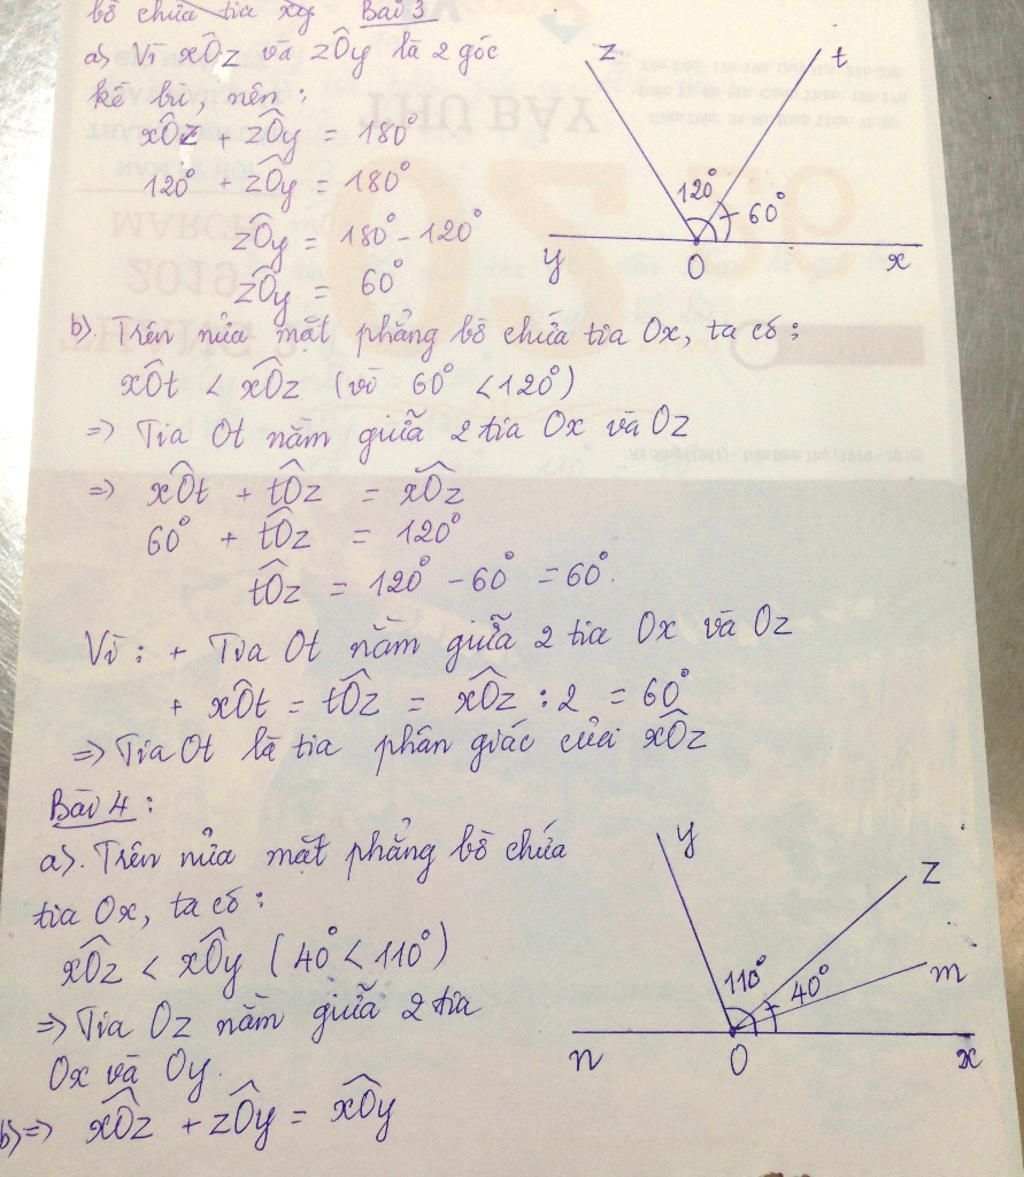 bờ chứa tia xy Bài 3
a) Vì xÔz và zÔy là 2 góc
kề bù, nên:
xÔz + zÔy = 180°
120° + zÔy = 180°
zÔy = 180° - 120°
zÔy = 60°
z t
120° 60°
y O x
b). Trên nửa mặt phẳng bờ chứa tia Ox, ta có:
xÔt < xÔz (vì 60° < 120°)
=> Tia Ot nằm giữa 2 tia Ox và Oz
=> xÔt + tÔz = xÔz
60° + tÔz = 120°
tÔz = 120° - 60° = 60°.
Vì: + Tia Ot nằm giữa 2 tia Ox và Oz
+ xÔt = tÔz = xÔz : 2 = 60°
=> Tia Ot là tia phân giác của xÔz
Bài 4:
a). Trên nửa mặt phẳng bờ chứa
tia Ox, ta có:
xÔz < xÔy (40° < 110°)
=> Tia Oz nằm giữa 2 tia
Ox và Oy.
b) => xÔz + zÔy = xÔy
y z
110° 40° m
n O x